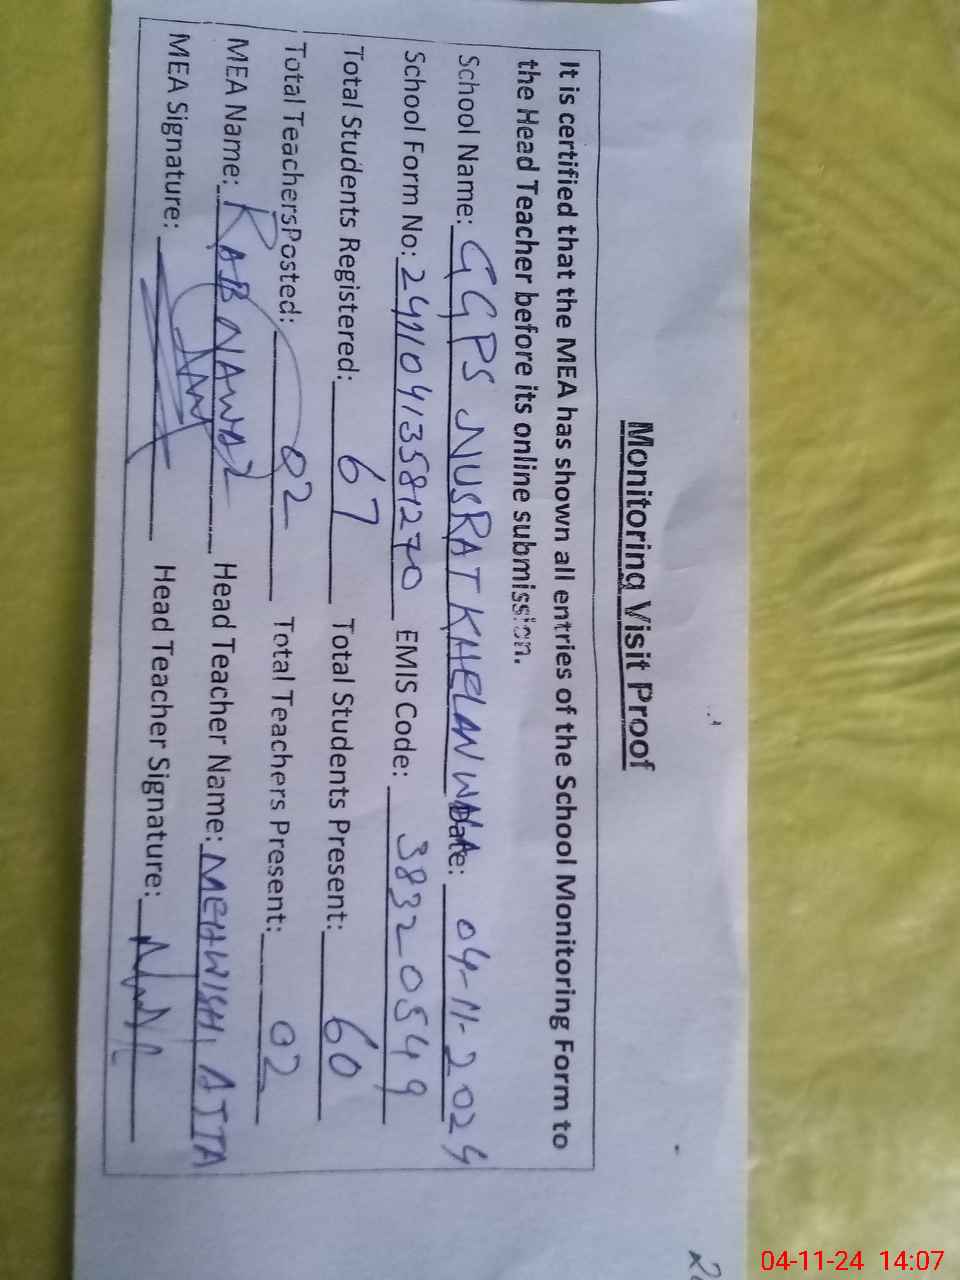 Monitoring Visit Proof
It is certified that the MEA has shown all entries of the School Monitoring Form to
the Head Teacher before its online submission.
School Name: GGPS NUSRAT KHELANWALA Date: 04-11-2024
School Form No: 24110413581270 EMIS Code: 38320549
Total Students Registered: 67 Total Students Present: 60
Total TeachersPosted: 02 Total Teachers Present: 02
MEA Name: RAB NAWAZ Head Teacher Name: MEHWISH ATTA
MEA Signature: Head Teacher Signature:
04-11-24 14:07